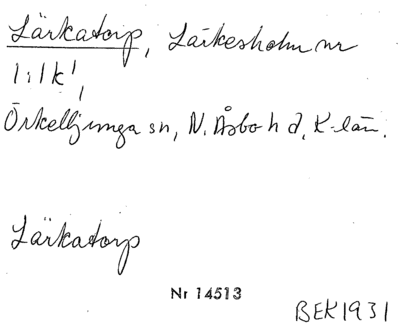 Lärkatorp, Lärkesholm nr
1:1 k',
Örkelljunga sn, N. Åsbo hd, K-län.
Lärkatorp
Nr 14513
BEK1931